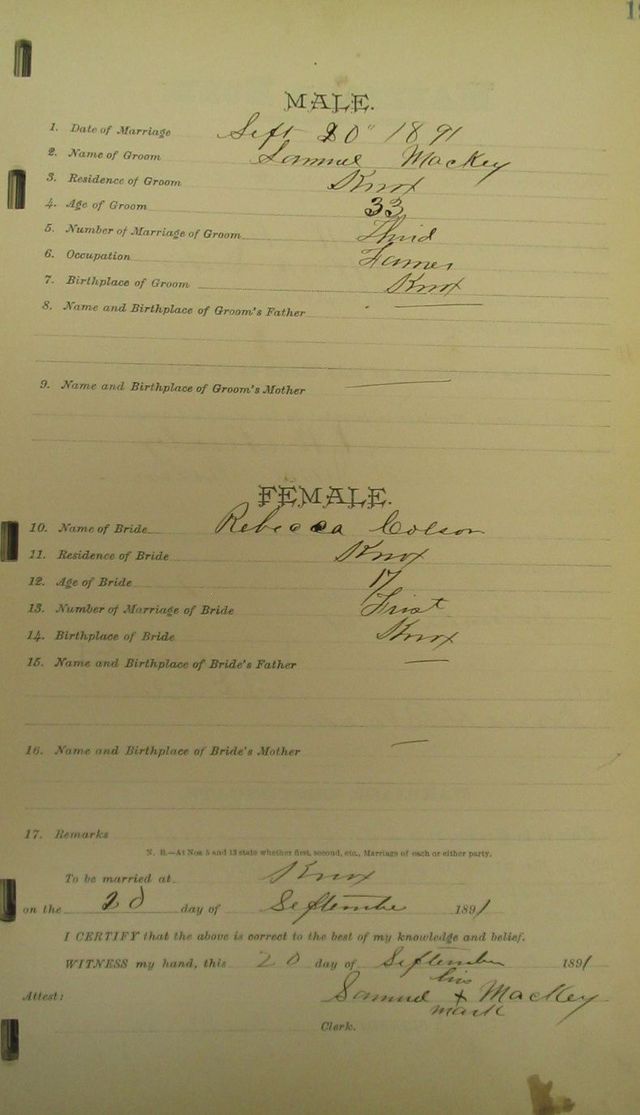 MALE.
1. Date of Marriage Sept 20" 1891
2. Name of Groom Samuel Mackey
3. Residence of Groom Knox
4. Age of Groom 33
5. Number of Marriage of Groom Third
6. Occupation Farmer
7. Birthplace of Groom Knox
8. Name and Birthplace of Groom's Father
9. Name and Birthplace of Groom's Mother
FEMALE.
10. Name of Bride Rebecca Colson
11. Residence of Bride Knox
12. Age of Bride 17
13. Number of Marriage of Bride First
14. Birthplace of Bride Knox
15. Name and Birthplace of Bride's Father —
16. Name and Birthplace of Bride's Mother —
17. Remarks
N. B.—At Nos 5 and 13 state whether first, second, etc., Marriage of each or either party.
To be married at Knox
on the 20 day of September 1891
I CERTIFY that the above is correct to the best of my knowledge and belief.
WITNESS my hand, this 20 day of September 1891
his
Attest: Samuel + Mackey
mark
Clerk.